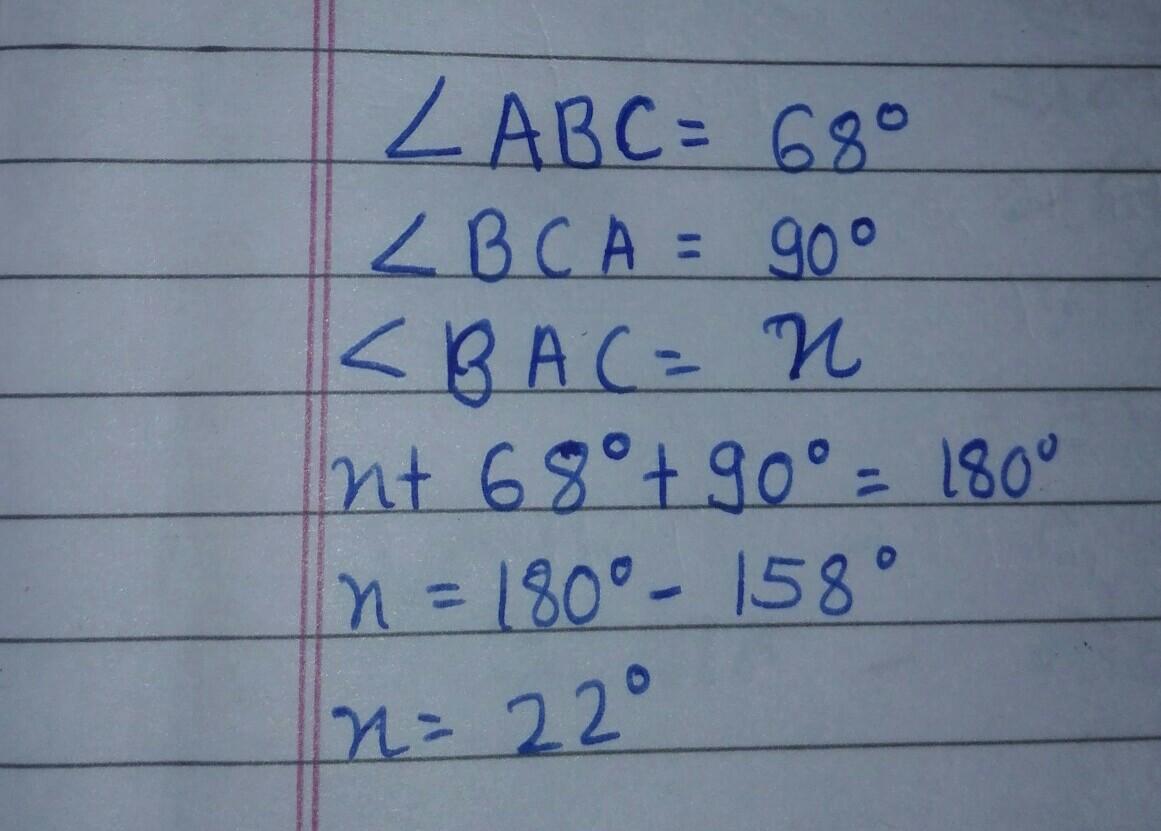 ∠ABC = 68°
∠BCA = 90°
∠BAC = x
x + 68° + 90° = 180°
x = 180° - 158°
x = 22°